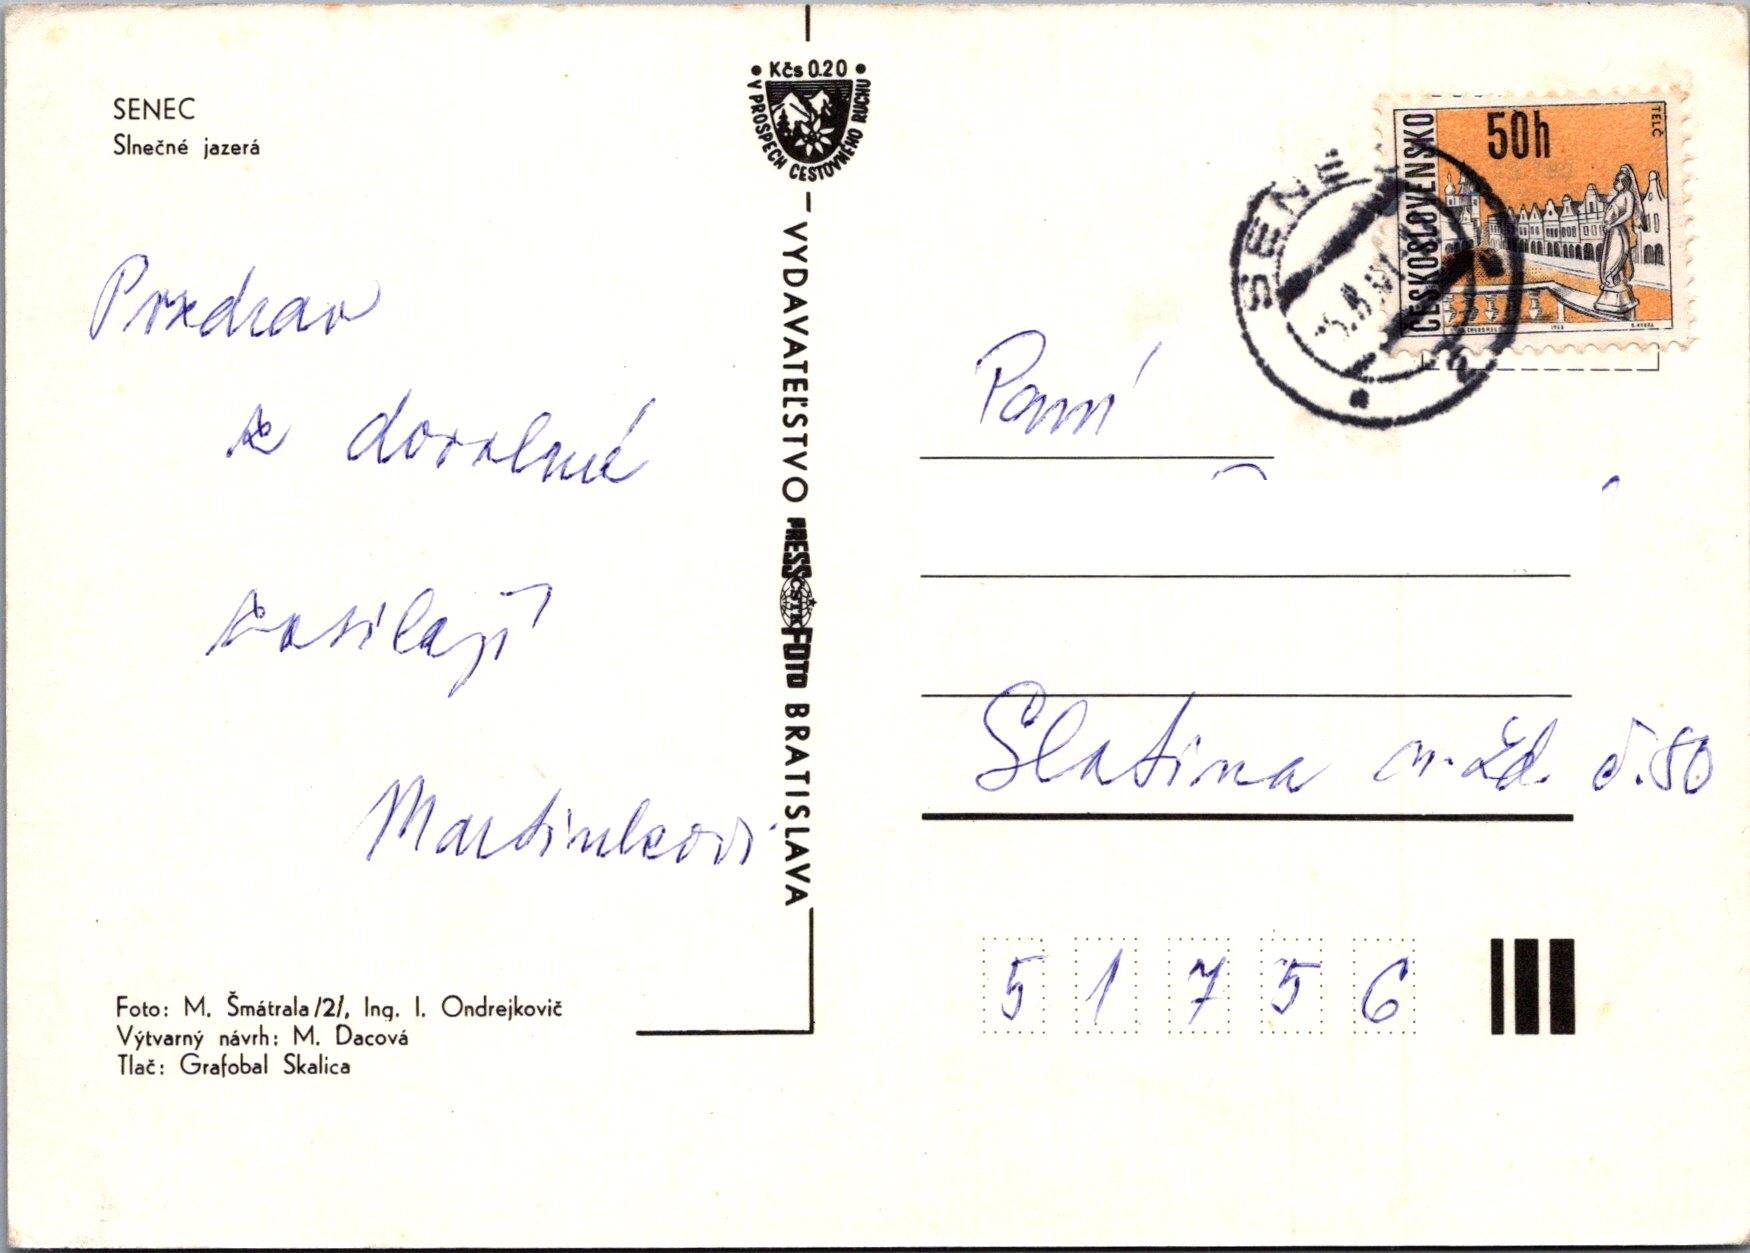 SENEC
Slnečné jazerá
Pozdrav
z dovolené
zasílají
Martinkovi
Foto: M. Šmátrala/2/, Ing. I. Ondrejkovič
Výtvarný návrh: M. Dacová
Tlač: Grafobal Skalica
• Kčs 0.20 •
V PROSPECH CESTOVNÉHO RUCHU
VYDAVATEĽSTVO PRESSFOTO BRATISLAVA
ČSTK
ČESKOSLOVENSKO
50h
TELČ
SENEC
Paní
Slatina n. Zd. č. 80
5 1 7 5 6